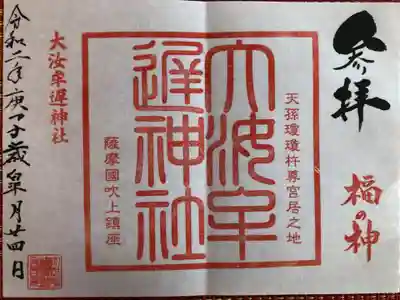 参拝
福の神
天孫瓊瓊杵尊宮居之地
大汝牟遅神社
薩摩國吹上鎮座
大汝牟遅神社
令和二年庚子歳皐月廿四日